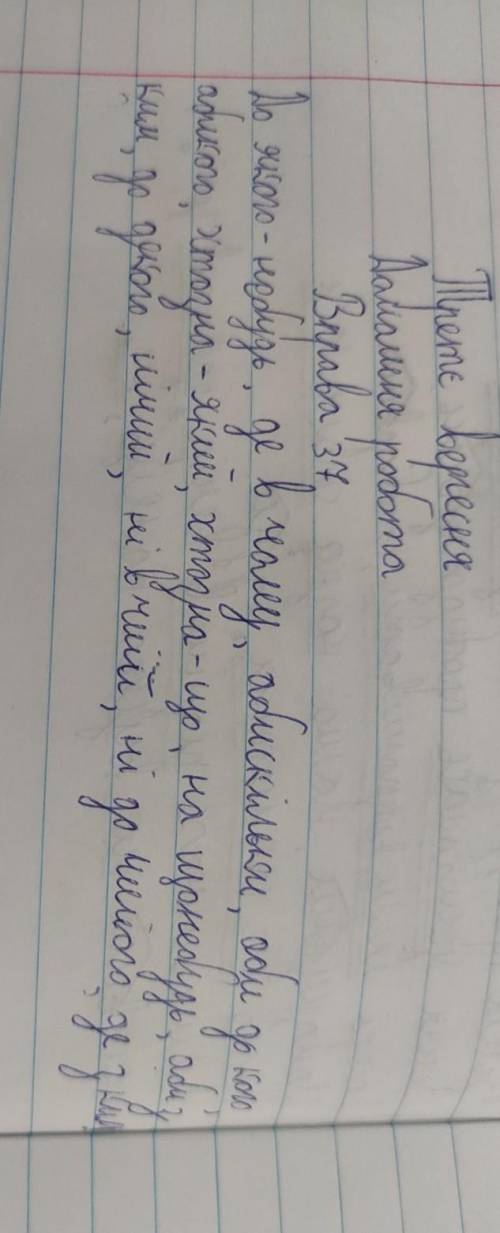 Третє вересня
Домашня робота
Вправа 37
До якого-небудь, де в чому, абискільки, аби до кого
абикого, хтозна-який, хтозна-що, на щонебудь, аби з
ким, до декого, нічий, ні в чиїй, ні до чийого, де з ким